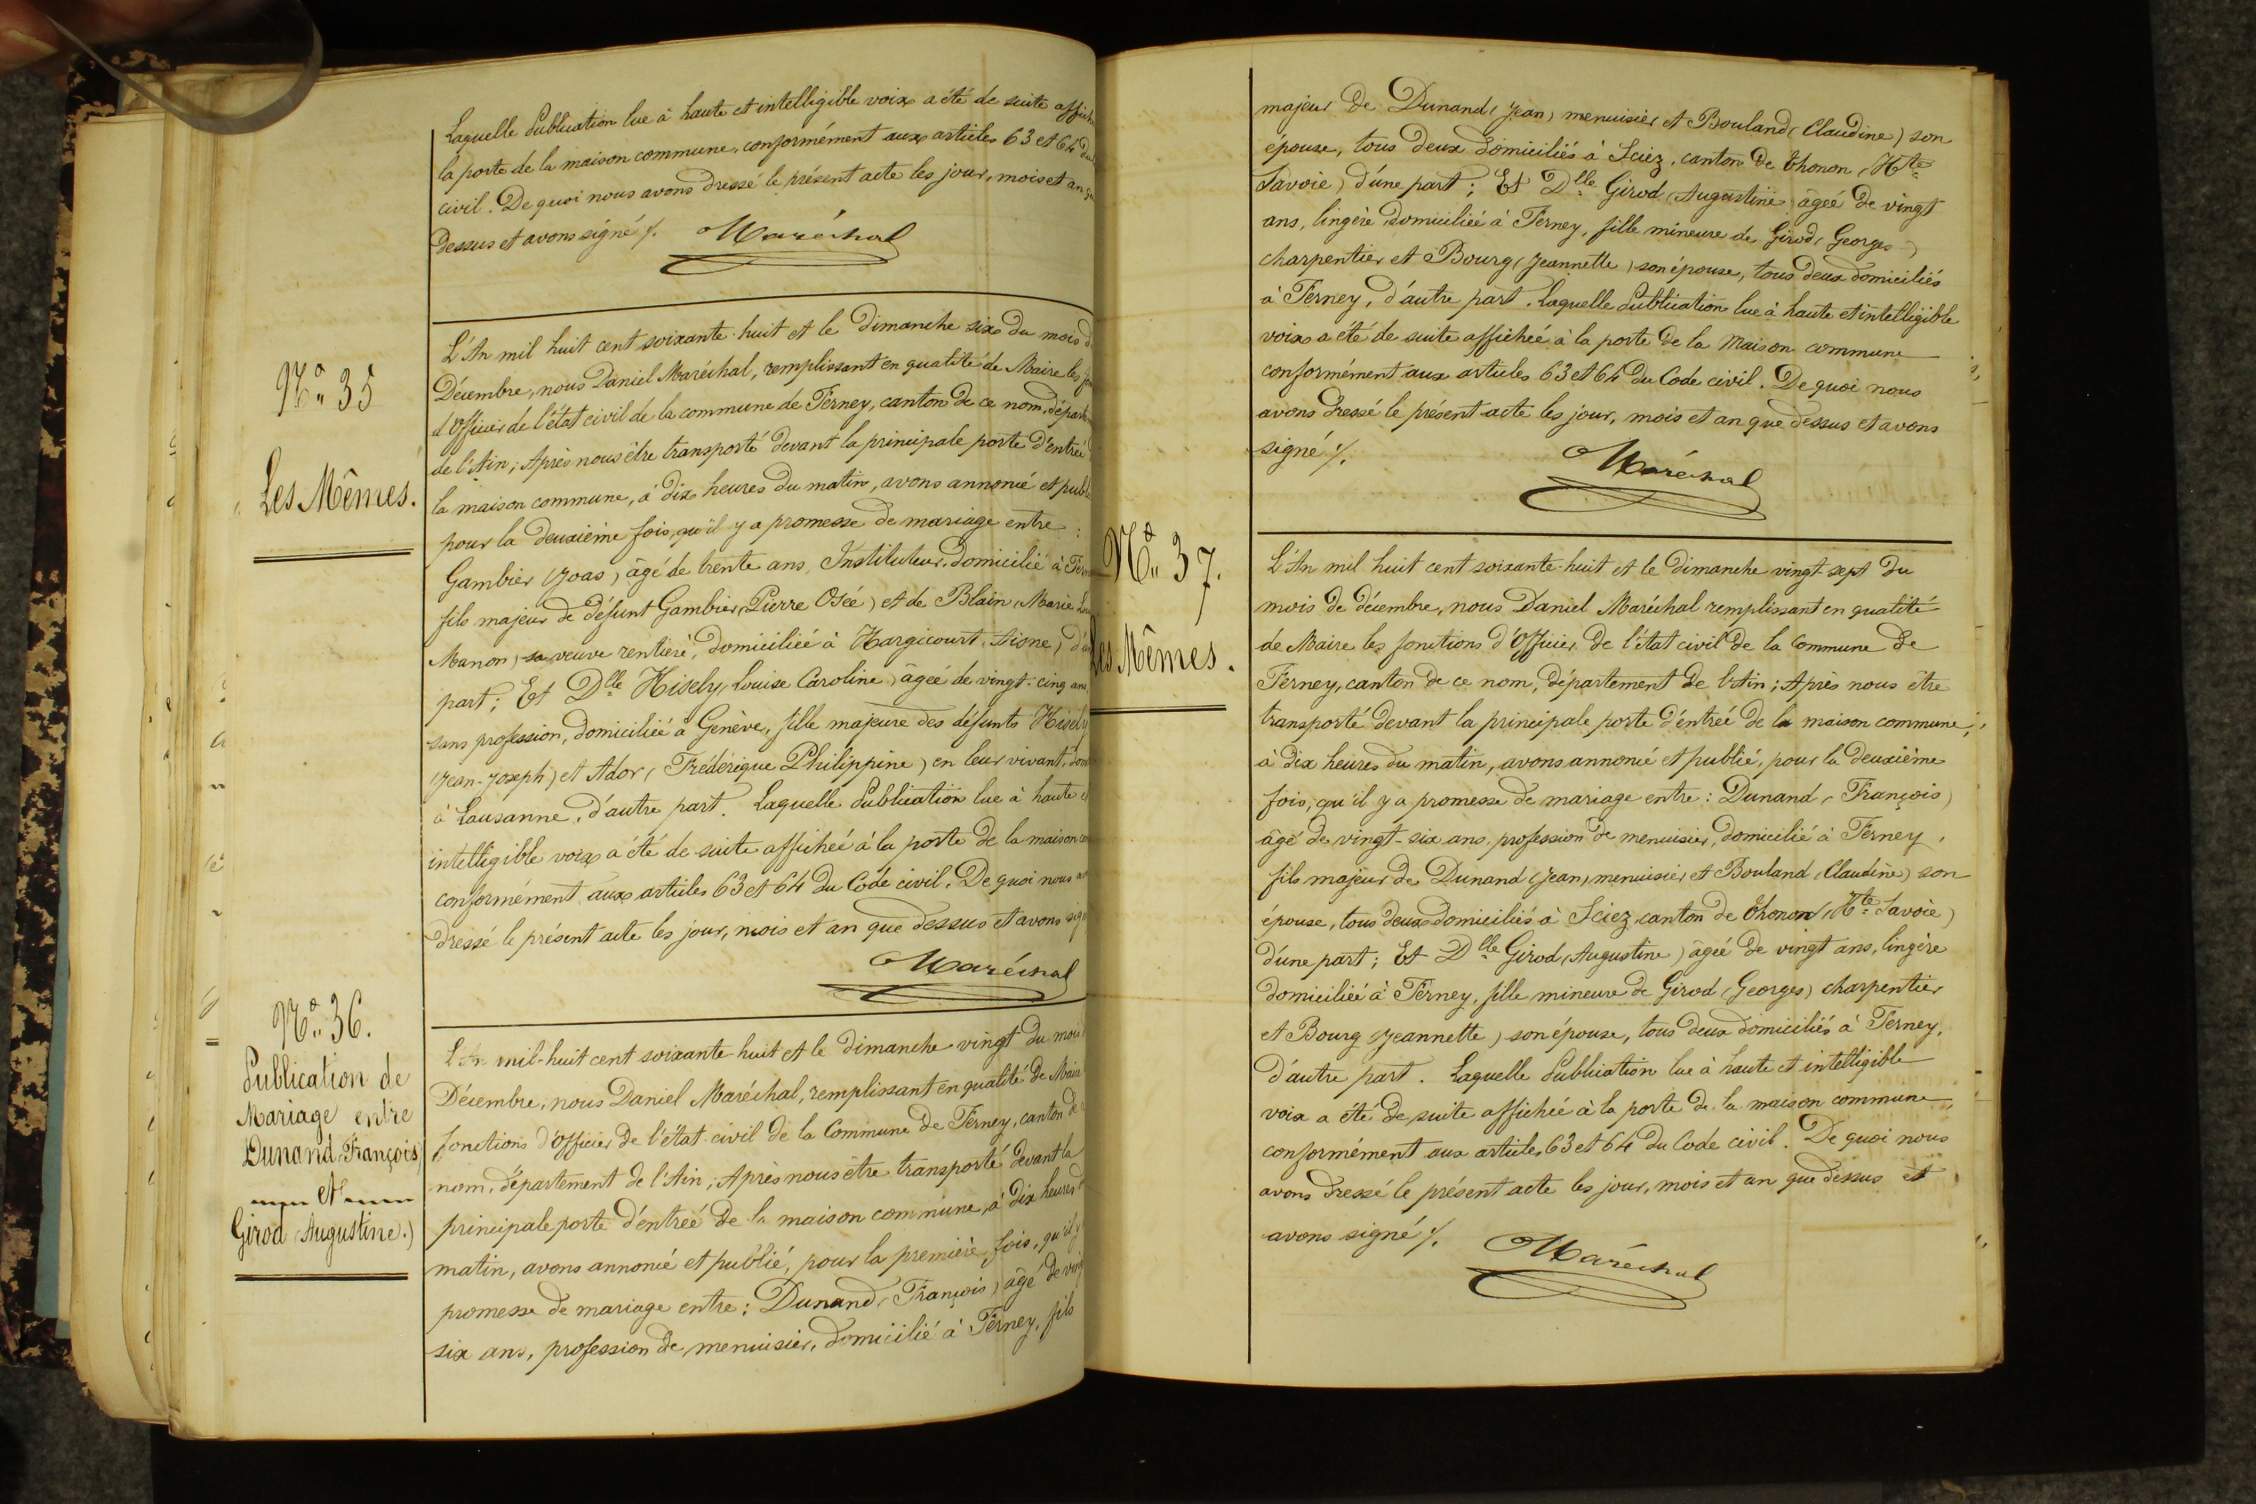 Laquelle Publication lue à haute et intelligible voix a été de suite affich
la porte de la maison commune, conformément aux articles 63 et 64 du
civil. De quoi nous avons dressé le présent acte les jour, mois et an que
dessus et avons signé ⁒.
Maréchal
Nº 35
Les Mêmes.
L'An mil huit cent soixante-huit et le dimanche six du mois d
Décembre, nous Daniel Maréchal, remplissant en qualité de Maire les fon
d'Officier de l'état civil de la commune de Ferney, canton de ce nom, départ
de l'Ain; Après nous être transporté devant la principale porte d'entrée
la maison commune, à dix heures du matin, avons annoncé et publ
pour la deuxième fois, qu'il y a promesse de mariage entre :
Gambier (Joas) âgé de trente ans, Instituteur, domicilié à Fern
fils majeur de défunt Gambier (Pierre Osée) et de Blain (Marie
Manon) sa veuve rentière, domiciliée à Hargicourt (Aisne) d'un
part; Et Dlle Hisely (Louise Caroline) âgée de vingt-cinq ans,
sans profession, domiciliée à Genève, fille majeure des défunts Hisely
(Jean-Joseph) et Ador (Frédérique Philippine) en leur vivant, dom
à Lausanne, d'autre part. Laquelle Publication lue à haute et
intelligible voix a été de suite affichée à la porte de la maison com
conformément aux articles 63 et 64 du Code civil. De quoi nous av
dressé le présent acte les jour, mois et an que dessus et avons sign
Maréchal
Nº 36.
Publication de
Mariage entre
Dunand (François)
et
Girod (Augustine.)
L'An mil-huit cent soixante huit et le dimanche vingt du mois
Décembre, nous Daniel Maréchal, remplissant en qualité de Maire
fonctions d'Officier de l'état civil de la Commune de Ferney, canton de
nom, département de l'Ain; Après nous être transporté devant la
principale porte d'entrée de la maison commune, à dix heures d
matin, avons annoncé et publié, pour la première fois, qu'il y
promesse de mariage entre : Dunand (François) âgé de ving
six ans, profession de menuisier, domicilié à Ferney, fils
majeur de Dunand (Jean) menuisier et Bouland (Claudine) son
épouse, tous deux domiciliés à Sciez, canton de Thonon (Hte
Savoie) d'une part; Et Dlle Girod (Augustine) âgée de vingt
ans, lingère domiciliée à Ferney, fille mineure de Girod (Georges)
charpentier et Bourg (Jeannette) son épouse, tous deux domiciliés
à Ferney, d'autre part. Laquelle Publication lue à haute et intelligible
voix a été de suite affichée à la porte de la Maison commune
conformément aux articles 63 et 64 du Code civil. De quoi nous
avons dressé le présent acte les jour, mois et an que dessus et avons
signé ⁒.
Maréchal
Nº 37.
Les Mêmes.
L'An mil huit cent soixante-huit et le dimanche vingt-sept du
mois de décembre, nous Daniel Maréchal remplissant en qualité
de Maire les fonctions d'Officier de l'état civil de la Commune de
Ferney, canton de ce nom, département de l'Ain; Après nous être
transporté devant la principale porte d'entrée de la maison commune,
à dix heures du matin, avons annoncé et publié, pour la deuxième
fois, qu'il y a promesse de mariage entre : Dunand (François)
âgé de vingt-six ans, profession de menuisier, domicilié à Ferney,
fils majeur de Dunand (Jean) menuisier et Bouland (Claudine) son
épouse, tous deux domiciliés à Sciez canton de Thonon (Hte Savoie)
d'une part; Et Dlle Girod (Augustine) âgée de vingt ans, lingère
domiciliée à Ferney, fille mineure de Girod (Georges) charpentier
et Bourg (Jeannette) son épouse, tous deux domiciliés à Ferney,
d'autre part. Laquelle Publication lue à haute et intelligible
voix a été de suite affichée à la porte de la maison commune,
conformément aux articles 63 et 64 du Code civil. De quoi nous
avons dressé le présent acte les jour, mois et an que dessus et
avons signé ⁒.
Maréchal